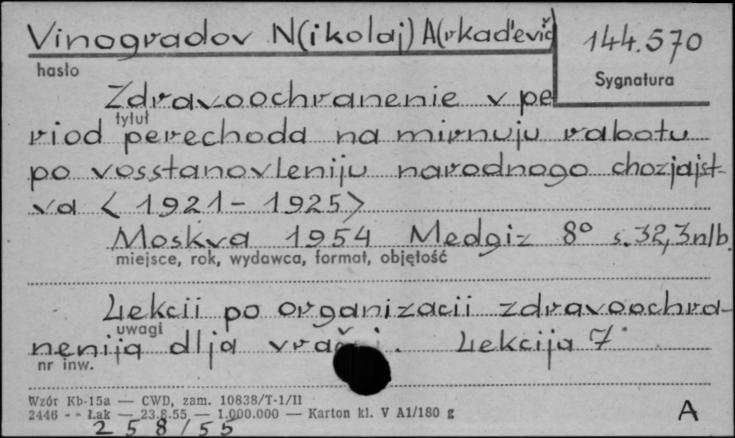 Vinogradov N(ikolaj) A(rkad'evič)
144.570
hasło
Sygnatura
Zdravoochranenie v pe
tytuł
riod perechoda na mirnuju rabotu
po vosstanovleniju narodnogo chozjajst-
va < 1921 - 1925 >
Moskva 1954 Medgiz 8° s. 32, 3 nlb.
miejsce, rok, wydawca, format, objętość
Lekcii po organizacii zdravoochra-
uwagi
nenija dlja . Lekcija 7
nr inw.
Wzór Kb-15a — CWD, zam. 10838/T-1/II
2446 - - Łak — 23.8.55 — 1.000.000 — Karton kl. V A1/180 g
258/55
A